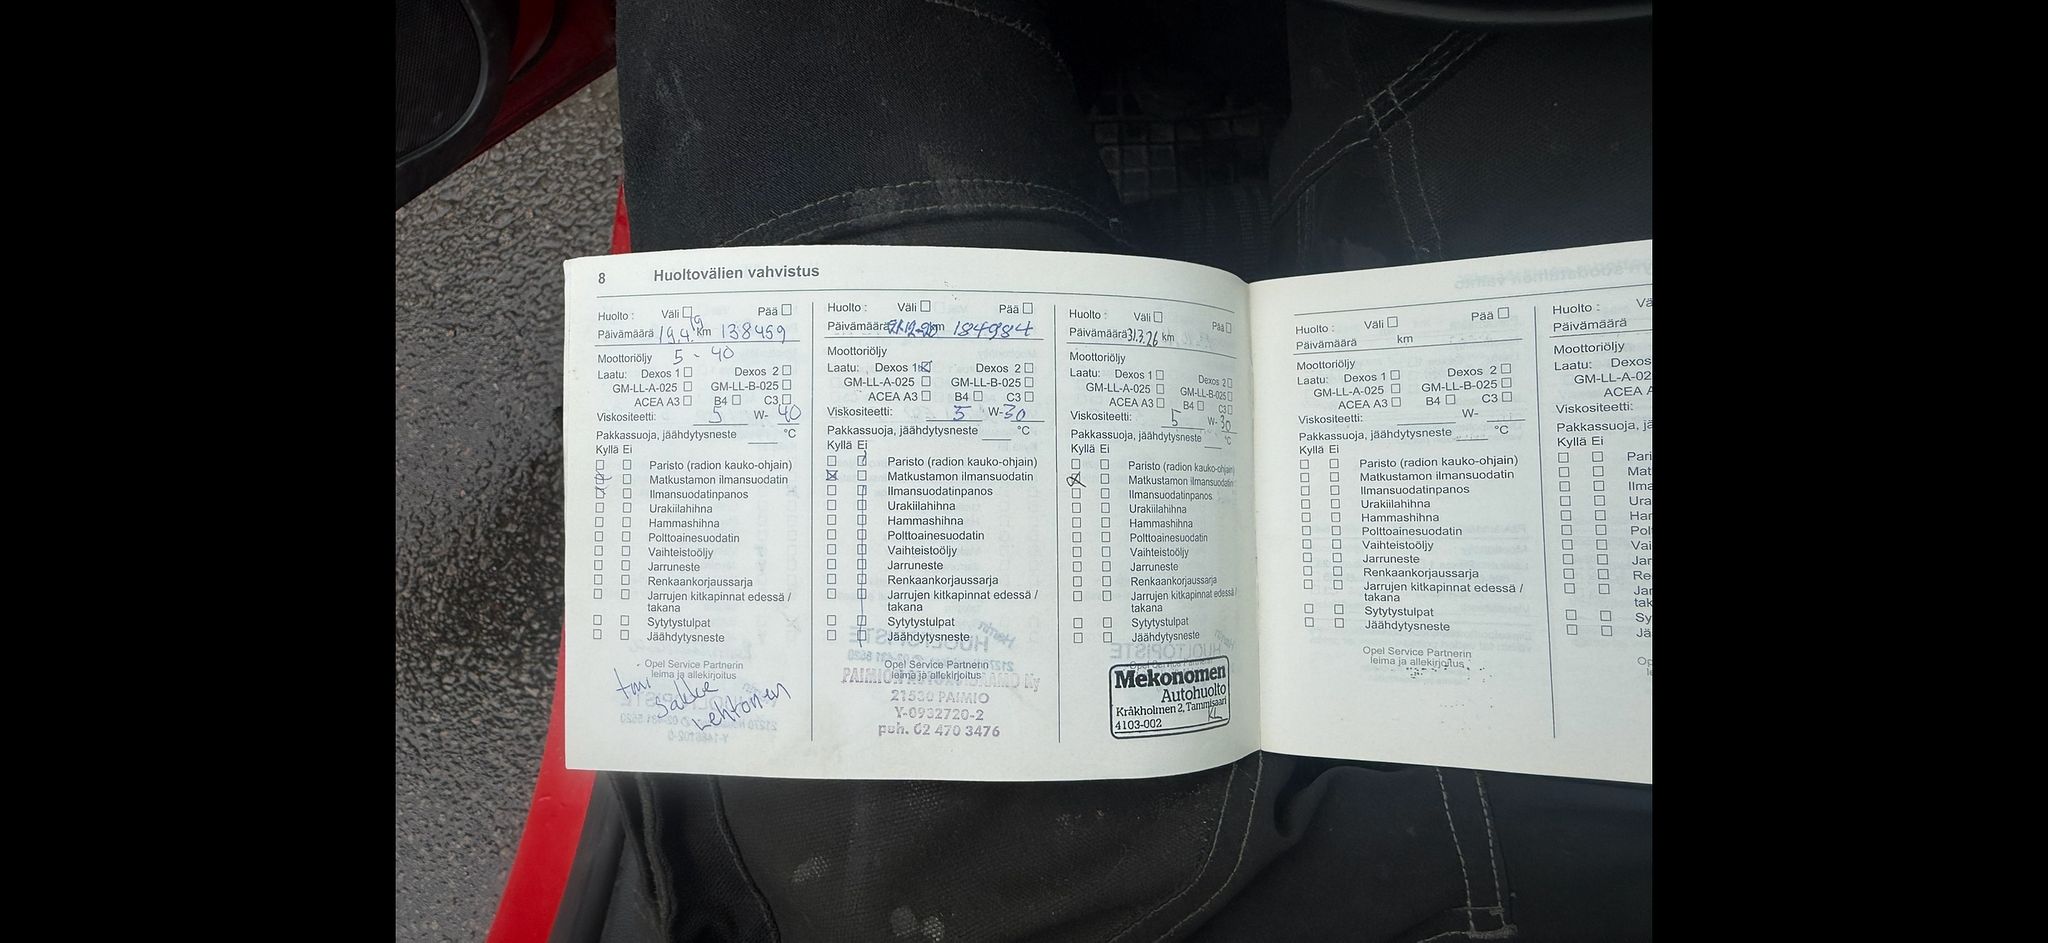 8 Huoltovälien vahvistus
Huolto : Väli Pää
Päivämäärä 19.4.19 km 138459
Moottoriöljy 5-40
Laatu: Dexos 1 Dexos 2
GM-LL-A-025 GM-LL-B-025
ACEA A3 B4 C3
Viskositeetti: 5 W- 40
Pakkassuoja, jäähdytysneste °C
Kyllä Ei
Paristo (radion kauko-ohjain)
Matkustamon ilmansuodatin
Ilmansuodatinpanos
Urakiilahihna
Hammashihna
Polttoainesuodatin
Vaihteistoöljy
Jarruneste
Renkaankorjaussarja
Jarrujen kitkapinnat edessä /
takana
Sytytystulpat
Jäähdytysneste
Opel Service Partnerin
leima ja allekirjoitus
tmi
Sakke
Lehtonen
Huolto : Väli Pää
Päivämäärä km 184984
Moottoriöljy
Laatu: Dexos 1 Dexos 2
GM-LL-A-025 GM-LL-B-025
ACEA A3 B4 C3
Viskositeetti: 5 W-30
Pakkassuoja, jäähdytysneste °C
Kyllä Ei
Paristo (radion kauko-ohjain)
Matkustamon ilmansuodatin
Ilmansuodatinpanos
Urakiilahihna
Hammashihna
Polttoainesuodatin
Vaihteistoöljy
Jarruneste
Renkaankorjaussarja
Jarrujen kitkapinnat edessä /
takana
Sytytystulpat
Jäähdytysneste
Opel Service Partnerin
leima ja allekirjoitus
PAIMION
21530 PAIMIO
Y-0932720-2
puh. 02 470 3476
Huolto : Väli Pää
Päivämäärä 31.3.26 km
Moottoriöljy
Laatu: Dexos 1 Dexos 2
GM-LL-A-025 GM-LL-B-025
ACEA A3 B4 C3
Viskositeetti: 5 W- 30
Pakkassuoja, jäähdytysneste °C
Kyllä Ei
Paristo (radion kauko-ohjain)
Matkustamon ilmansuodatin
Ilmansuodatinpanos
Urakiilahihna
Hammashihna
Polttoainesuodatin
Vaihteistoöljy
Jarruneste
Renkaankorjaussarja
Jarrujen kitkapinnat edessä /
takana
Sytytystulpat
Jäähdytysneste
Opel Service
Mekonomen
Autohuolto
Kråkholmen 2, Tammisaari
4103-002
Huolto : Väli Pää
Päivämäärä km
Moottoriöljy
Laatu: Dexos 1 Dexos 2
GM-LL-A-025 GM-LL-B-025
ACEA A3 B4 C3
Viskositeetti: W-
Pakkassuoja, jäähdytysneste °C
Kyllä Ei
Paristo (radion kauko-ohjain)
Matkustamon ilmansuodatin
Ilmansuodatinpanos
Urakiilahihna
Hammashihna
Polttoainesuodatin
Vaihteistoöljy
Jarruneste
Renkaankorjaussarja
Jarrujen kitkapinnat edessä /
takana
Sytytystulpat
Jäähdytysneste
Opel Service Partnerin
leima ja allekirjoitus
Huolto : Vä
Päivämäärä
Moottoriöljy
Laatu: Dexos
GM-LL-A-02
ACEA A
Viskositeetti:
Pakkassuoja, jä
Kyllä Ei
Pari
Mat
Ilma
Ura
Har
Pol
Vai
Jar
Re
Jar
tak
Sy
Jä